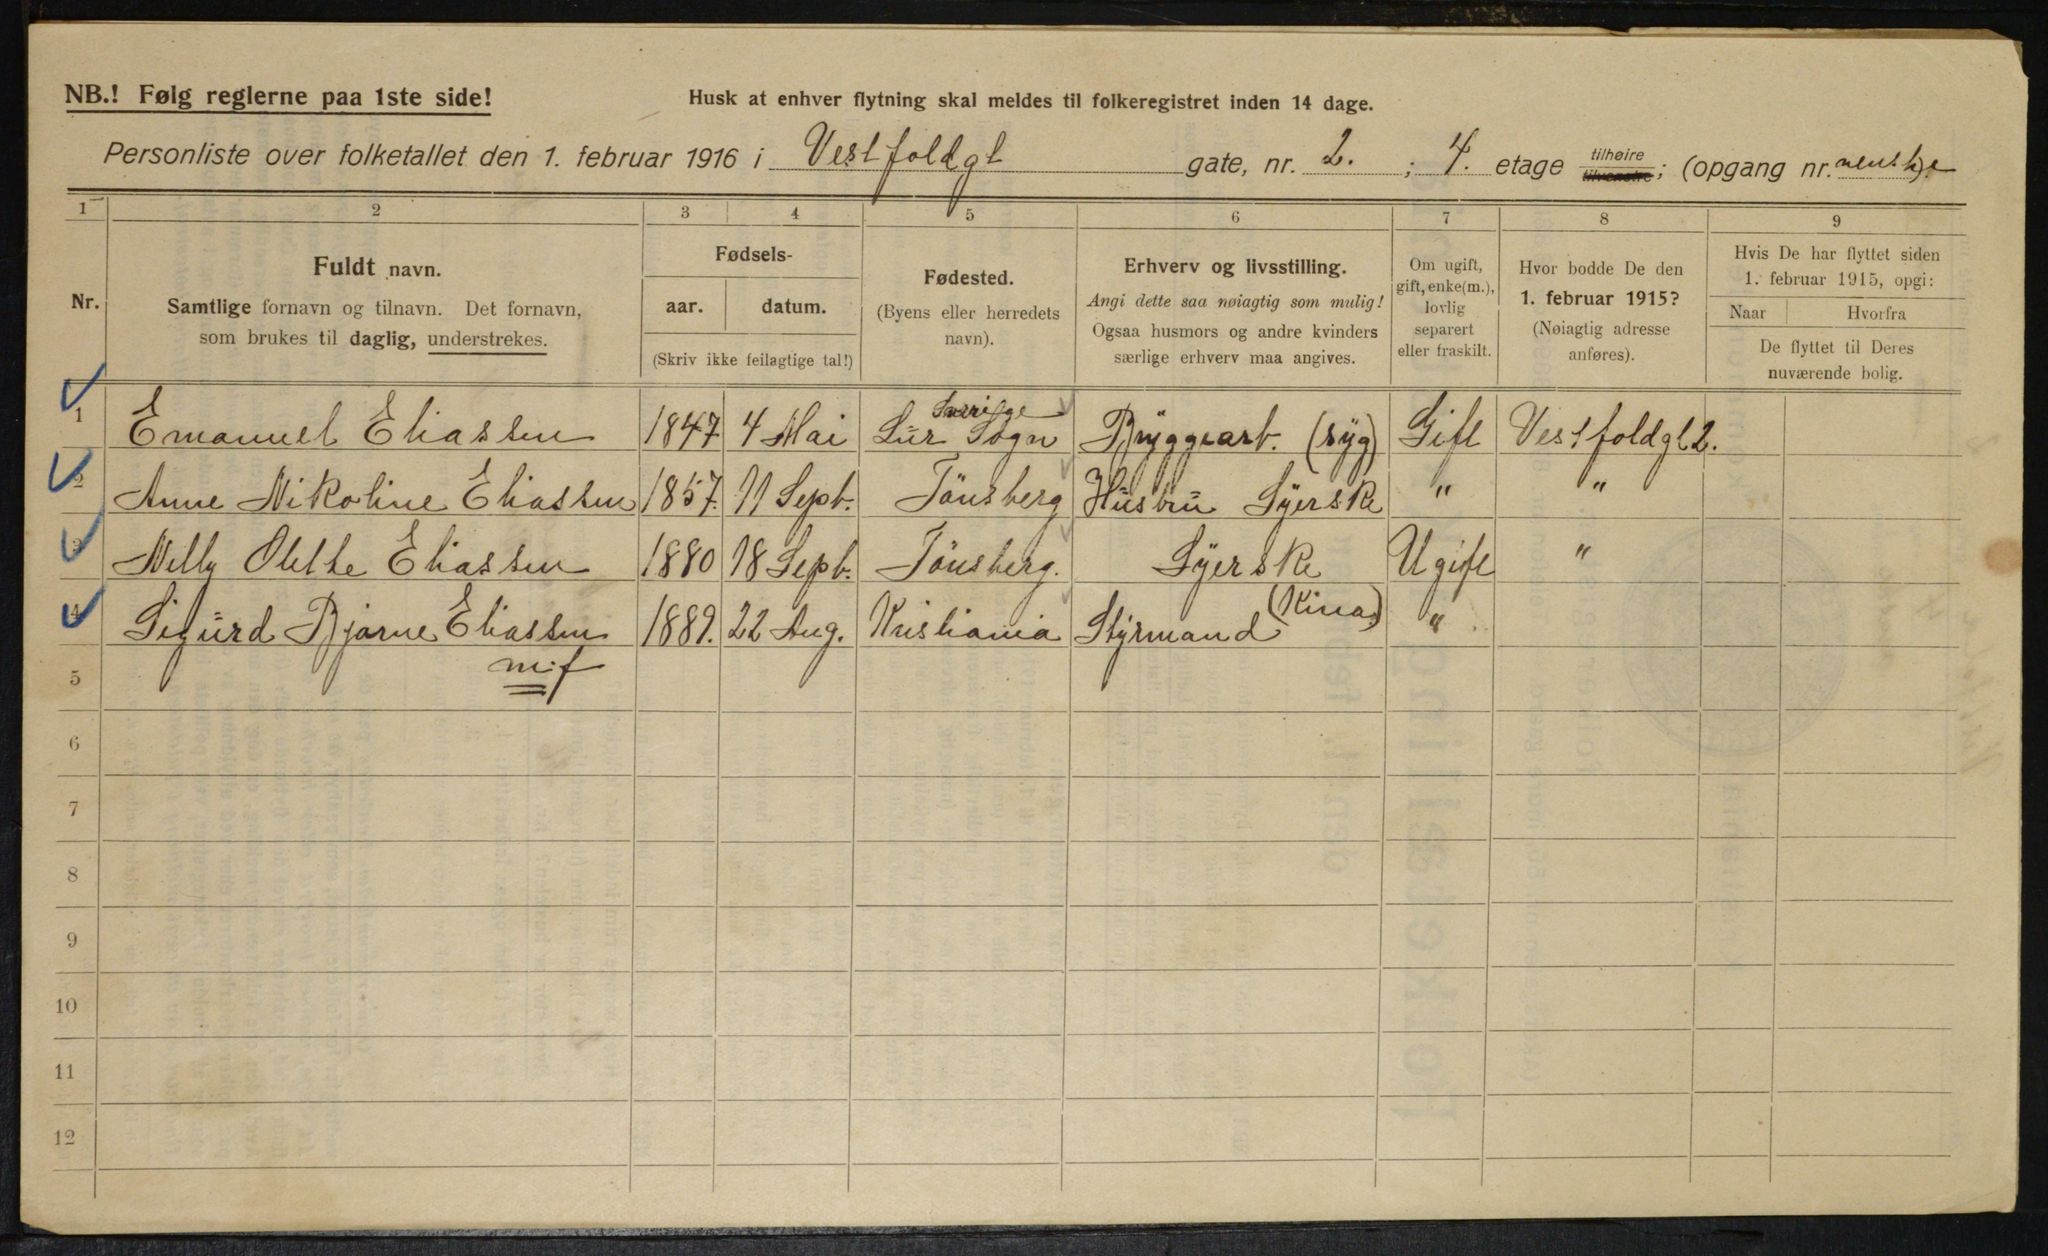 NB.! Følg reglerne paa 1ste side!
Husk at enhver flytning skal meldes til folkeregistret inden 14 dage.
Personliste over folketallet den 1. februar 1916 i Vestfoldgt gate, nr. 2. ; 4. etage tilhøire tilvenstre; (opgang nr.
1 2 3 4 5 6 7 8 9
Nr.
Fuldt navn.
Samtlige fornavn og tilnavn. Det fornavn,
som brukes til daglig, understrekes.
Fødsels-
aar. datum.
(Skriv ikke feilagtige tal!)
Fødested.
(Byens eller herredets
navn).
Erhverv og livsstilling.
Angi dette saa nøiagtig som mulig!
Ogsaa husmors og andre kvinders
særlige erhverv maa angives.
Om ugift,
gift, enke(m.),
lovlig
separert
eller fraskilt.
Hvor bodde De den
1. februar 1915?
(Nøiagtig adresse
anføres).
Hvis De har flyttet siden
1. februar 1915, opgi:
Naar Hvorfra
De flyttet til Deres
nuværende bolig.
1 Emanuel Eliassen 1847 4 Mai Lur Sogn Sverige Bryggearb. (syg) Gift Vestfoldgt 2.
2 Anne Nikoline Eliassen 1857. 11 Sept. Tönsberg Husbru Syerske " "
3 Nelly Olethe Eliassen 1880 18 Sept. Tönsberg. Syerske Ugift "
4 Sigurd Bjarne Eliassen 1889. 22 Aug. Kristiania Styrmand (Kina) "
5 m.f
6
7
8
9
10
11
12